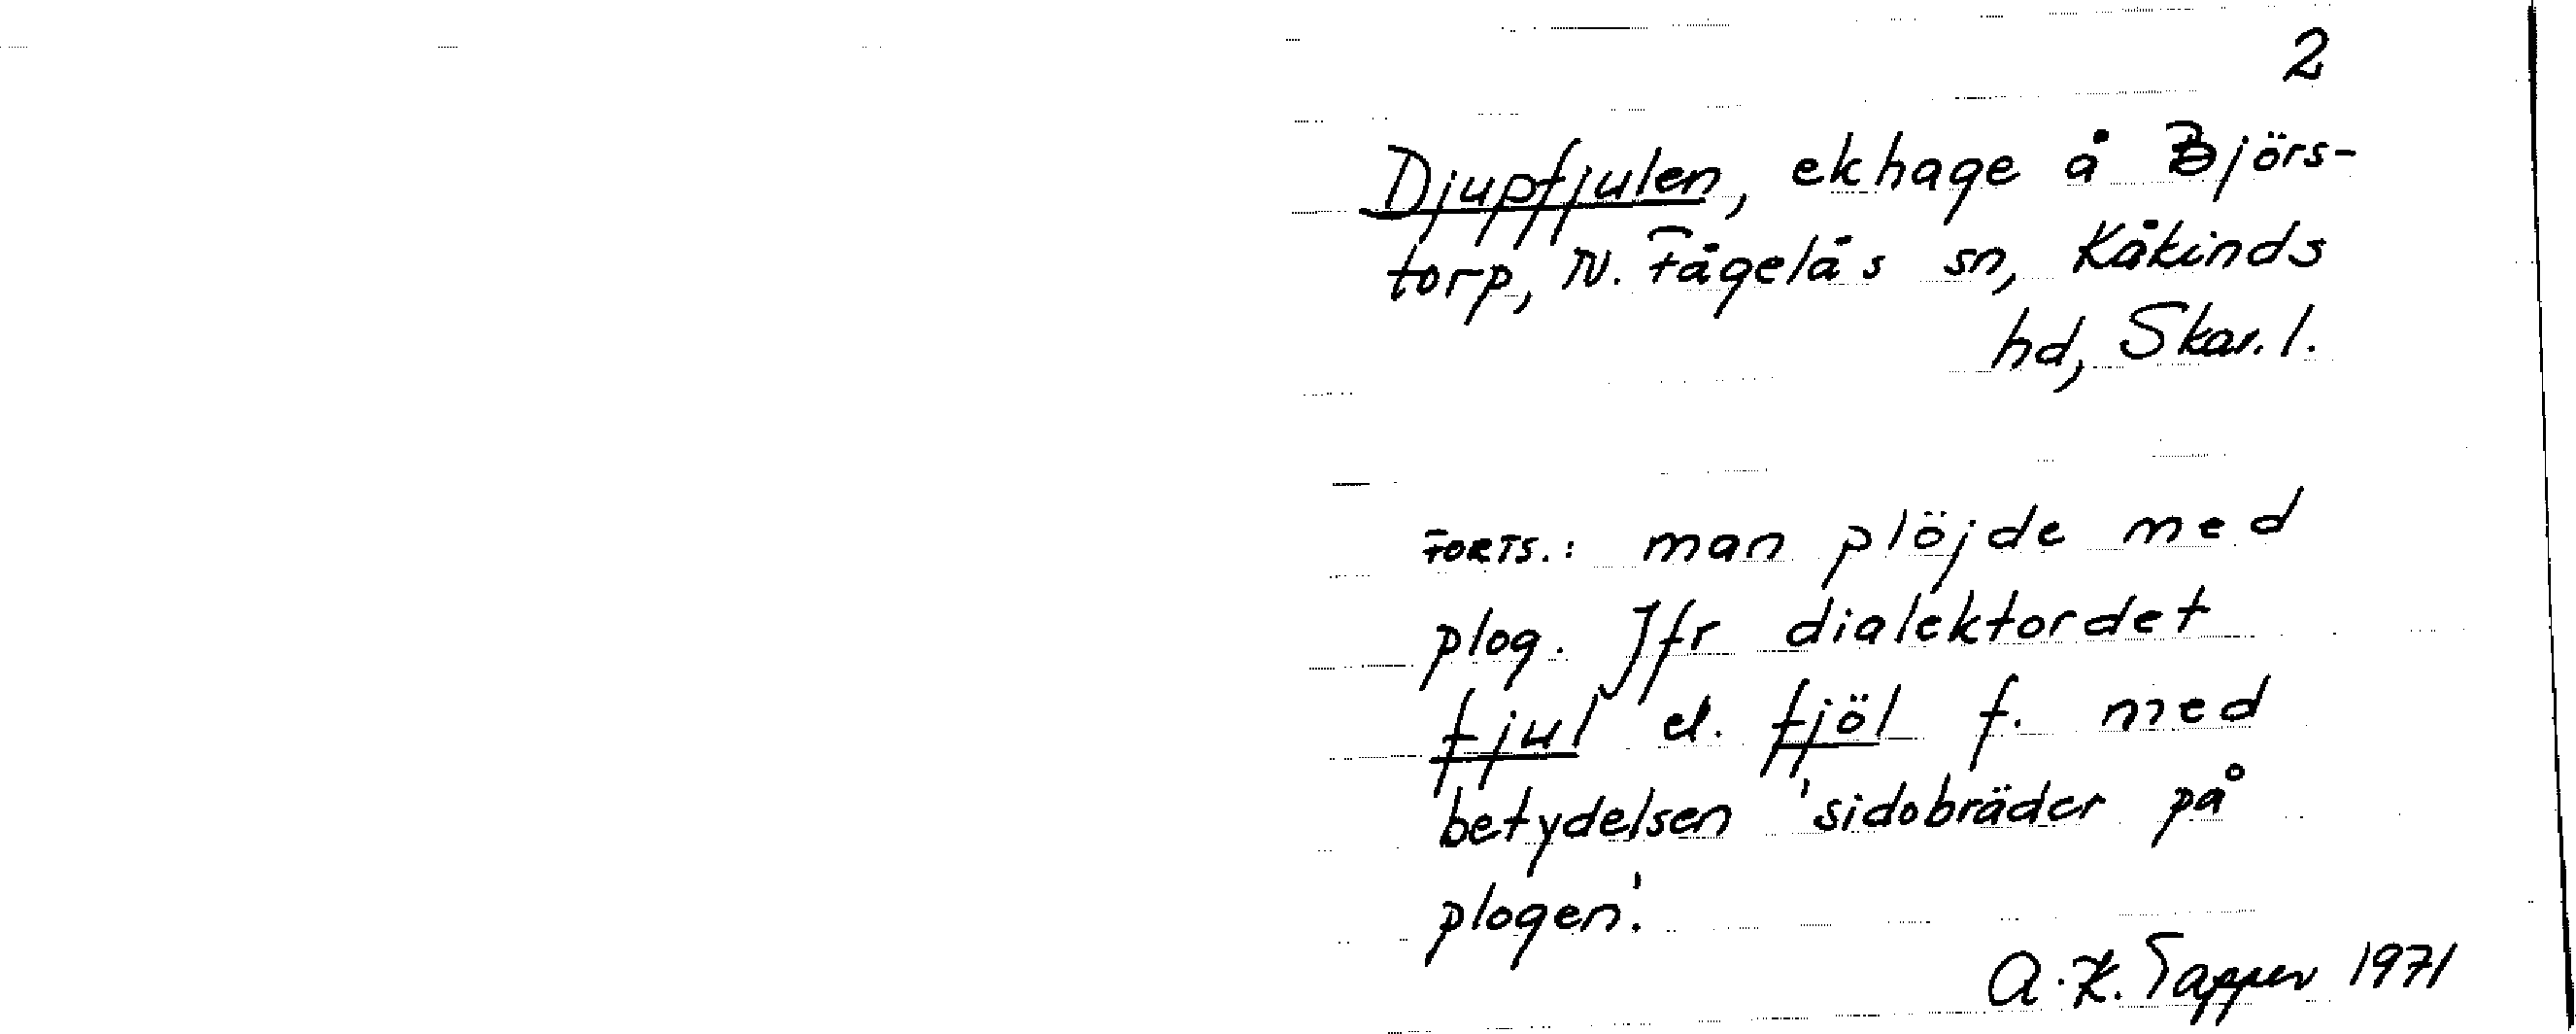 2
Djupfjulen, ekhage å Björs-
torp, N. Fågelås sn, Kåkinds
hd, Skar. l.
FORTS.: man plöjde med
plog. Jfr dialektordet
fjul el. fjöl f. med
betydelsen 'sidobräder på
plogen'.
A. K. Tapper 1971